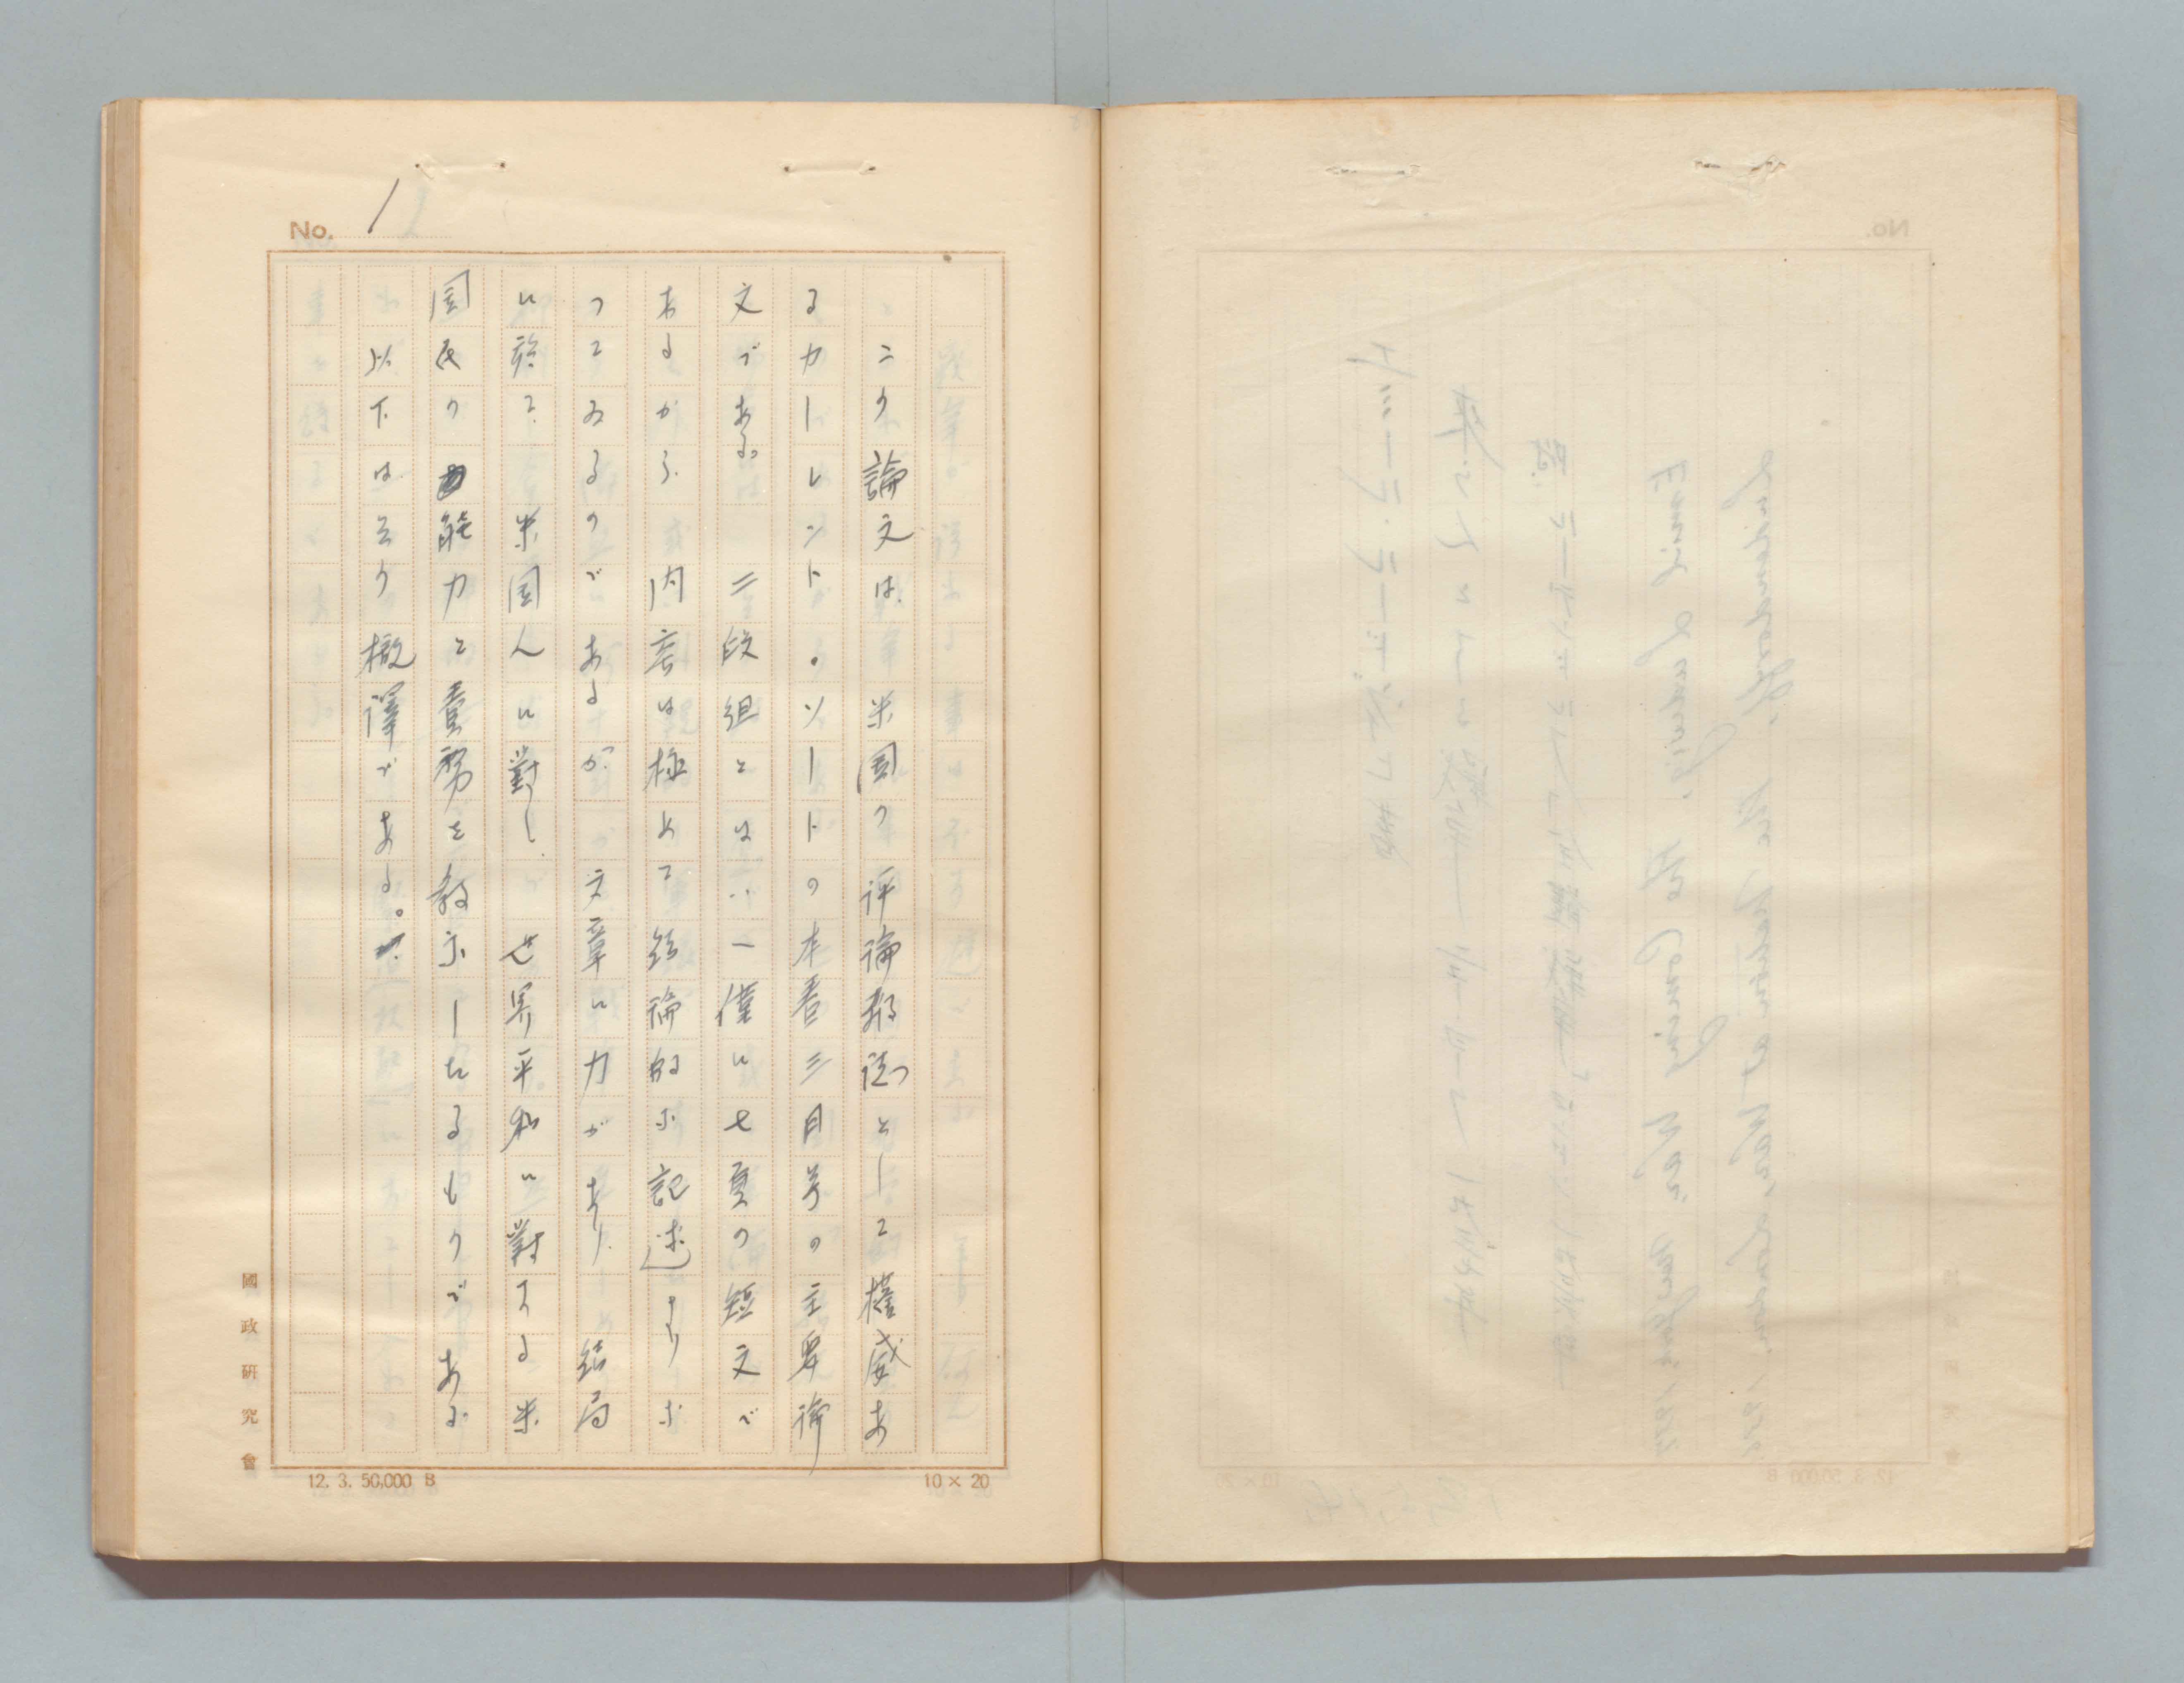 No. 1
この論文は、米国の評論雑誌として権威あ
るカーレント・ソートの本春三月号の主要論
文である。 二段組とは云へ僅に七頁の短文で
あるから、内容は極めて結論的な記述よりな
つてゐるのであるが、文章に力があり、結局
に於て、米国人に對し、世界平和に對する米
国民の能力と責務を教示したるものである
以下はその概譯である。
國政研究會
12. 3. 50,000 B
10×20